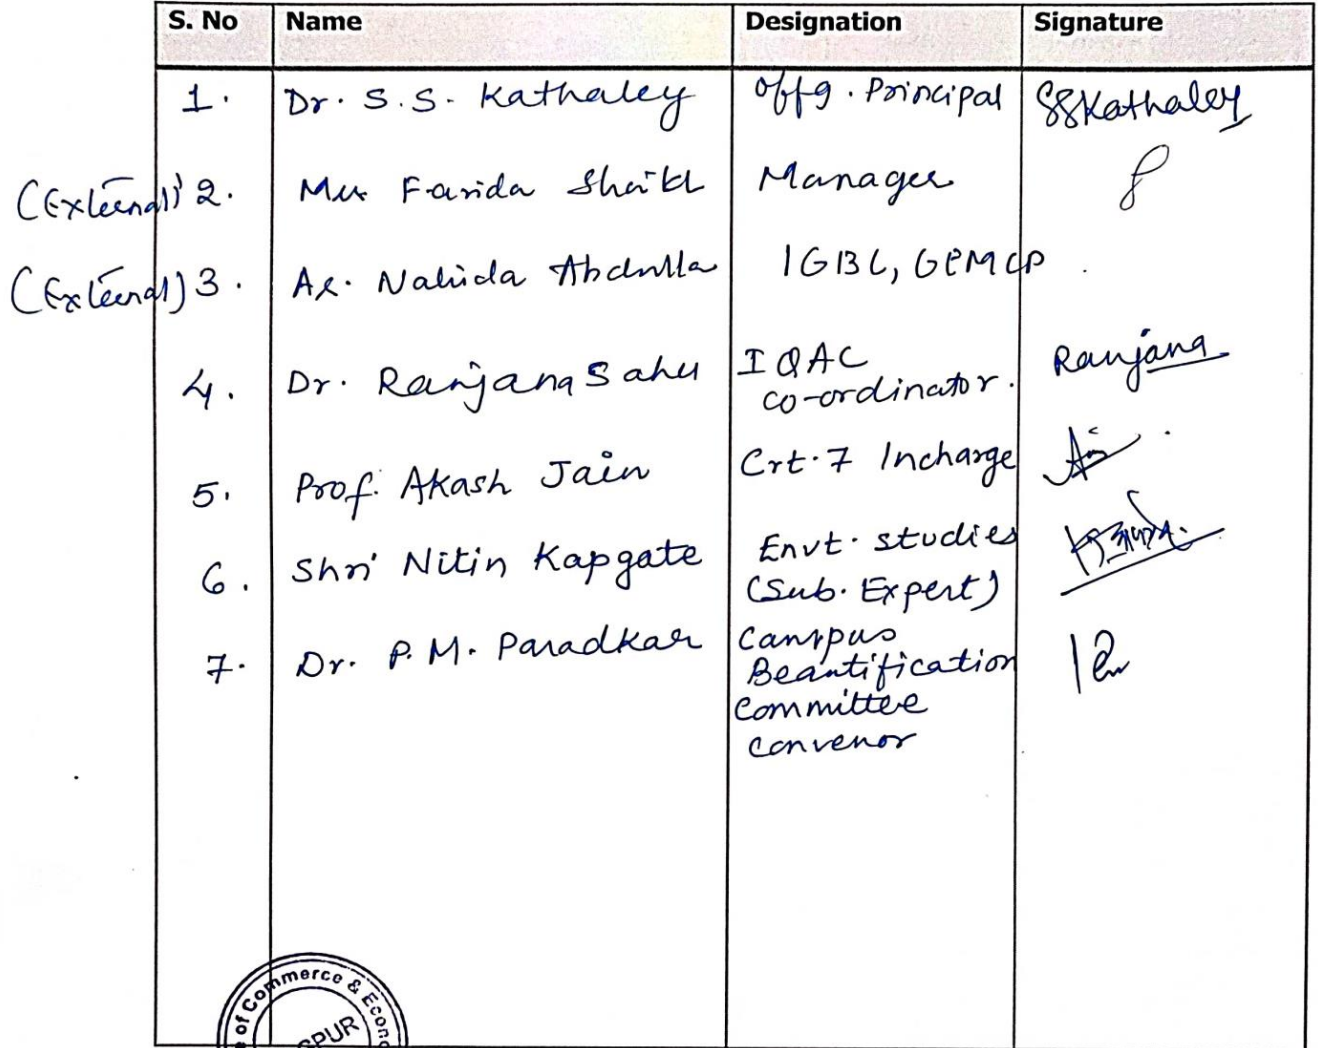 S. No Name Designation Signature
1. Dr. S.S. Kathaley Offg. Principal SSKathaley
(External) 2. Farida Shaikh Manager
(External) 3. Ar. Nahida Abdulla IGBC, GEM CP
4. Dr. Ranjana Sahu IQAC Ranjana
co-ordinator.
5. Prof. Akash Jain Crt. 7 Incharge
6. Shri Nitin Kapgate Envt. studies
(Sub. Expert)
7. Dr. P.M. Paradkar Campus
Beautification
Committee
Convenor
of Commerce &